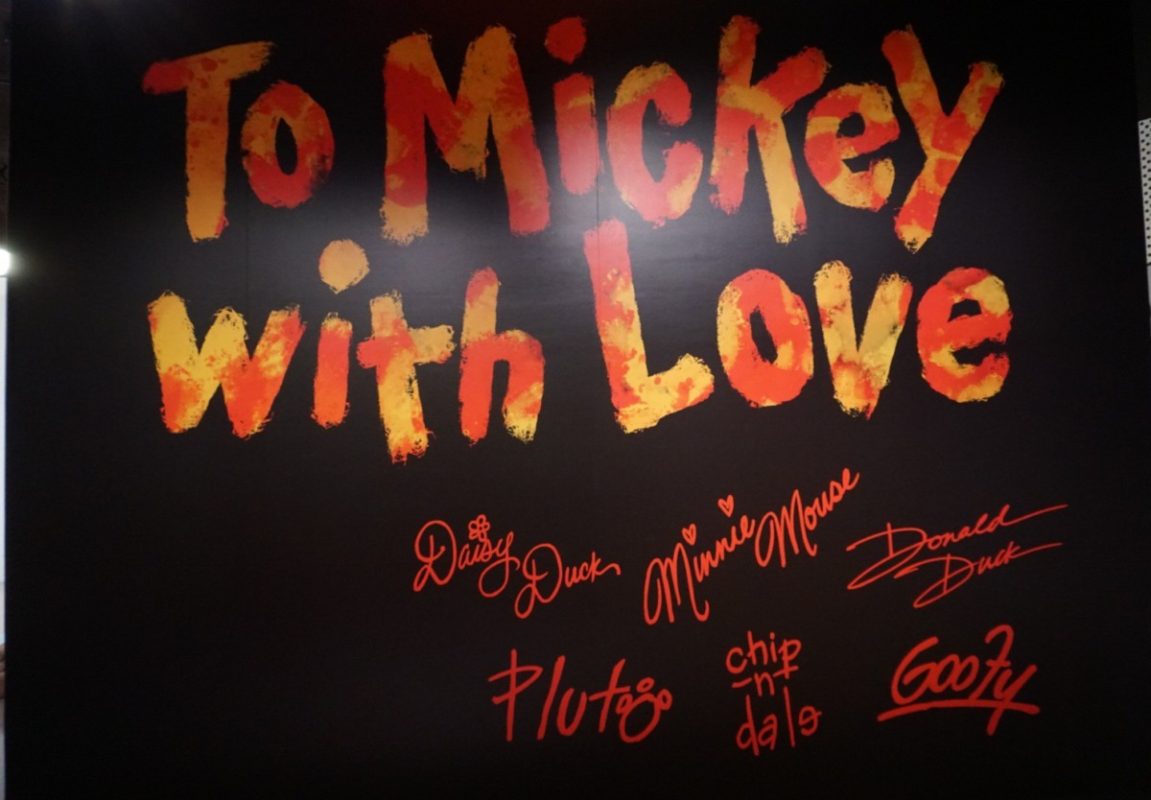 To Mickey
with Love
Daisy Duck
Minnie Mouse
Donald Duck
Pluto
chip
-n-
dale
Goofy